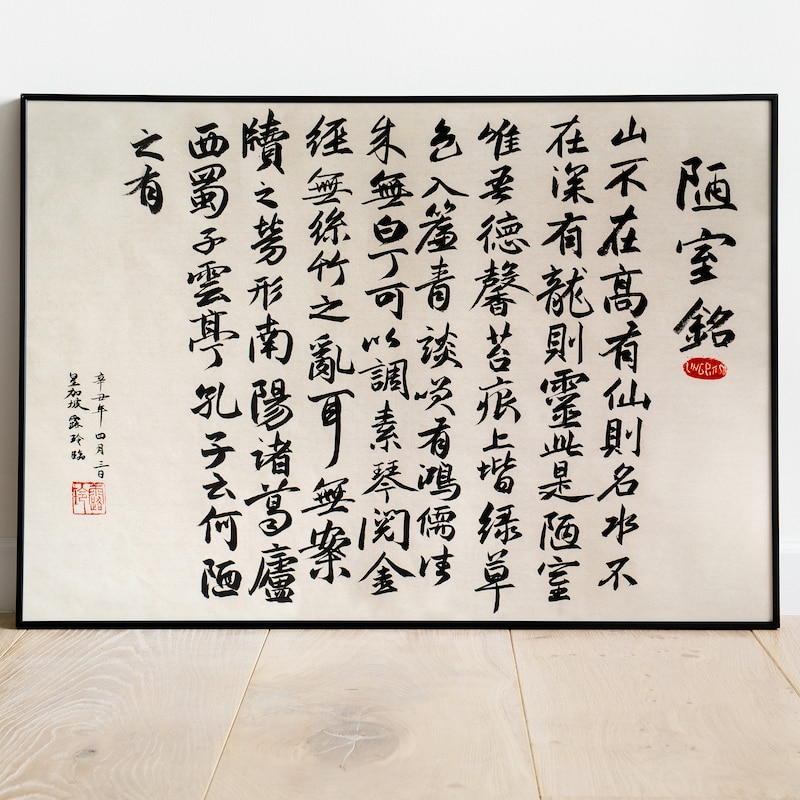 陋室銘
山不在高有仙則名水不
在深有龍則靈此是陋室
唯吾德馨苔痕上堦緑草
色入簾青談咲有鴻儒往
来無白丁可以調素琴閲金
經無絲竹之亂耳無案
牘之勞形南陽諸葛廬
西蜀子雲亭孔子云何陋
之有
辛丑年 四月三日
星加坡 露玲臨
露玲